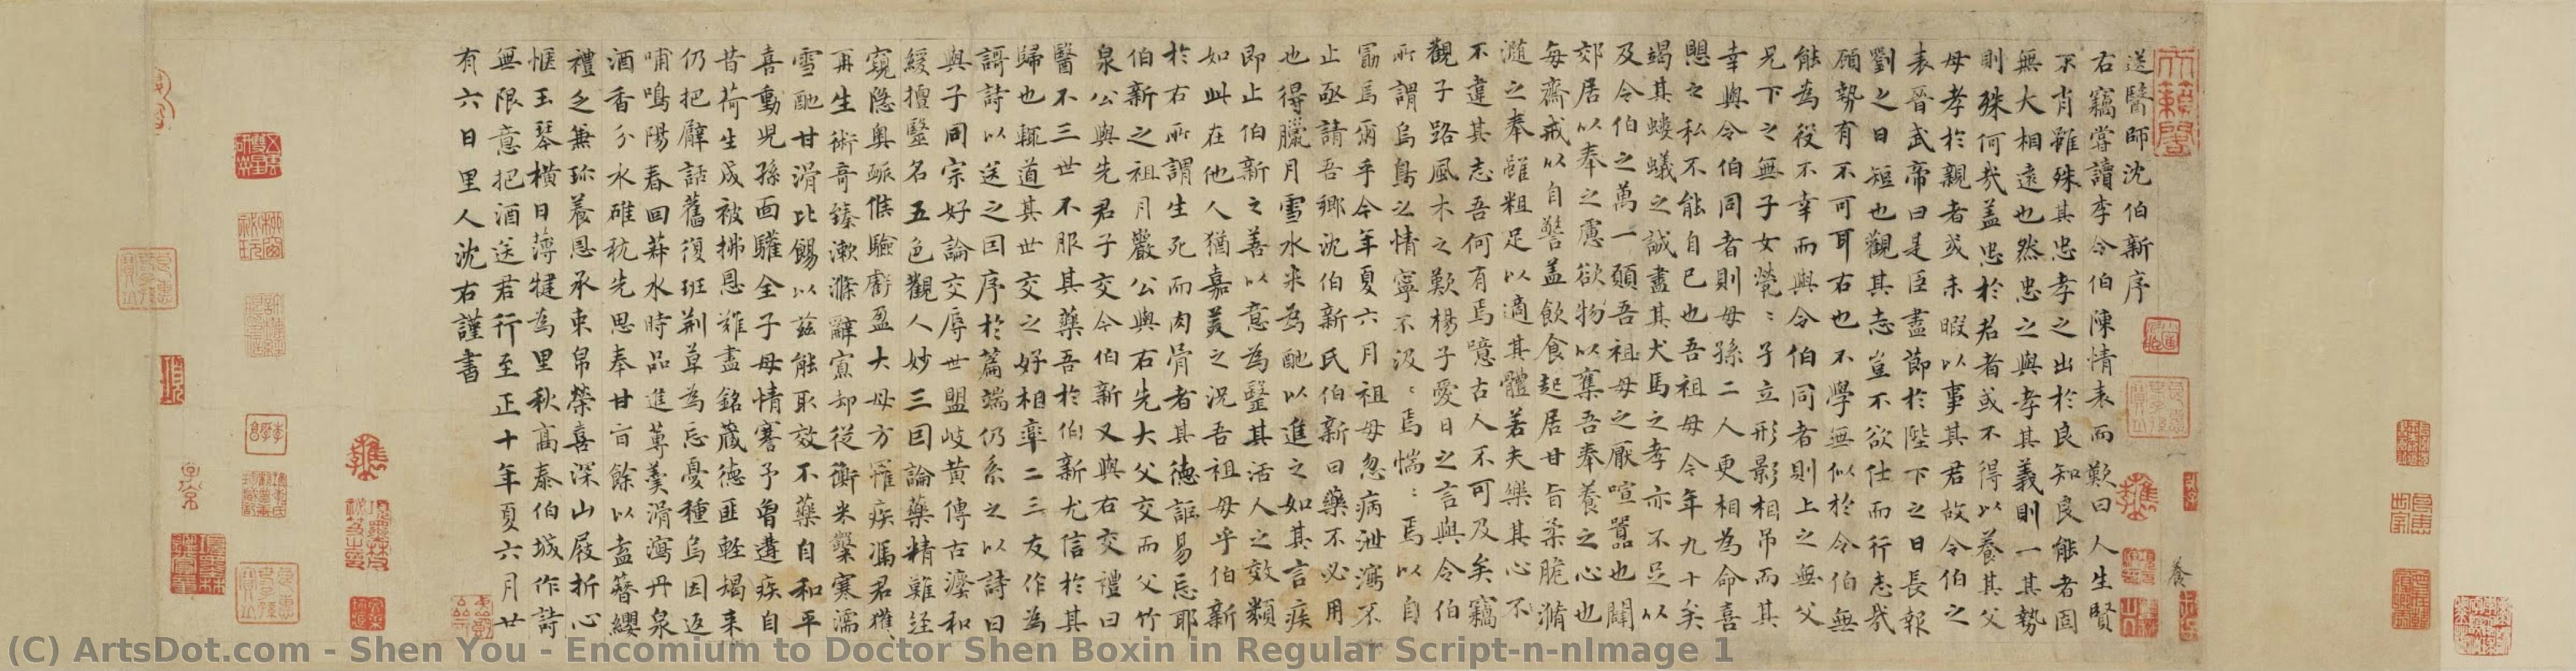 送醫師沈伯新序
右竊嘗讀李令伯陳情表而歎曰人生賢
不肖雖殊其忠孝之出於良知良能者固
無大相遠也然忠之與孝其義則一其勢
則殊何哉蓋忠於君者或不得以養其父
母孝於親者或未暇以事其君故令伯之
表晉武帝曰是臣盡節於陛下之日長報
劉之日短也觀其志豈不欲仕而行志哉
顧勢有不可耳右也不學無似於令伯無
能為役不幸而與令伯同者則上之無父
兄下之無子女煢〻孑立形影相吊而其
幸與令伯同者則母孫二人更相為命喜
懇之私不能自已也吾祖母今年九十矣
竭其螻蟻之誠盡其犬馬之孝亦不足以
及令伯之萬一顧吾祖母之厭喧囂也闢
郊居以奉之慮欲物以蠆吾奉養之心也
每齋戒以自警蓋飲食起居甘旨柔脆滫
瀡之奉雖粗足以適其體若夫樂其心不
不違其志吾何有焉噫古人不可及矣竊
觀子路風木之歎楊子愛日之言與令伯
所謂烏鳥之情寧不汲〻焉惴〻焉以自
勗焉爾乎今年夏六月祖母忽病泄瀉不
止亟請吾鄉沈伯新氏伯新曰藥不必用
也得臘月雪水米為酏以進之如其言疾
即止伯新之善以意為醫其活人之效類
如此在他人猶嘉美之況吾祖母乎伯新
於右所謂生死而肉骨者其德詎易忘耶
伯新之祖月巖公與右先大父交而父竹
泉公與先君子交今伯新又與右交禮曰
醫不三世不服其藥吾於伯新尤信於其
歸也輒道其世交之好相率二三友作為
謌詩以送之因序於篇端仍系之以詩曰
與子同宗好論交辱世盟岐黃傳古瀍和
緩擅醫名五色觀人妙三因論藥精難經
窺隱奧脈候驗虧盈大母方罹疾馮君獲
再生術奇臻漱滌辭寘却從衡米糳寒濡
雪酏甘滑比餳以茲能取效不藥自和平
喜動兒孫面驩全子母情騫予曾遘疾自
昔荷生成被拂恩難盡銘藏德匪輕朅來
仍把臂話舊復班荊草為忘憂種烏因返
哺鳴陽春回莽水時品進蓴羹滑瀉丹泉
酒香分水碓秔先思奉甘旨餘以盍簪纓
禮之兼珎養恩承束帛榮喜深山屐折心
愜玉琴橫日薄犍為里秋高泰伯城作詩
無限意把酒送君行至正十年夏六月廿
有六日里人沈右謹書
(C) ArtsDot.com - Shen You - Encomium to Doctor Shen Boxin in Regular Script-n-nImage 1